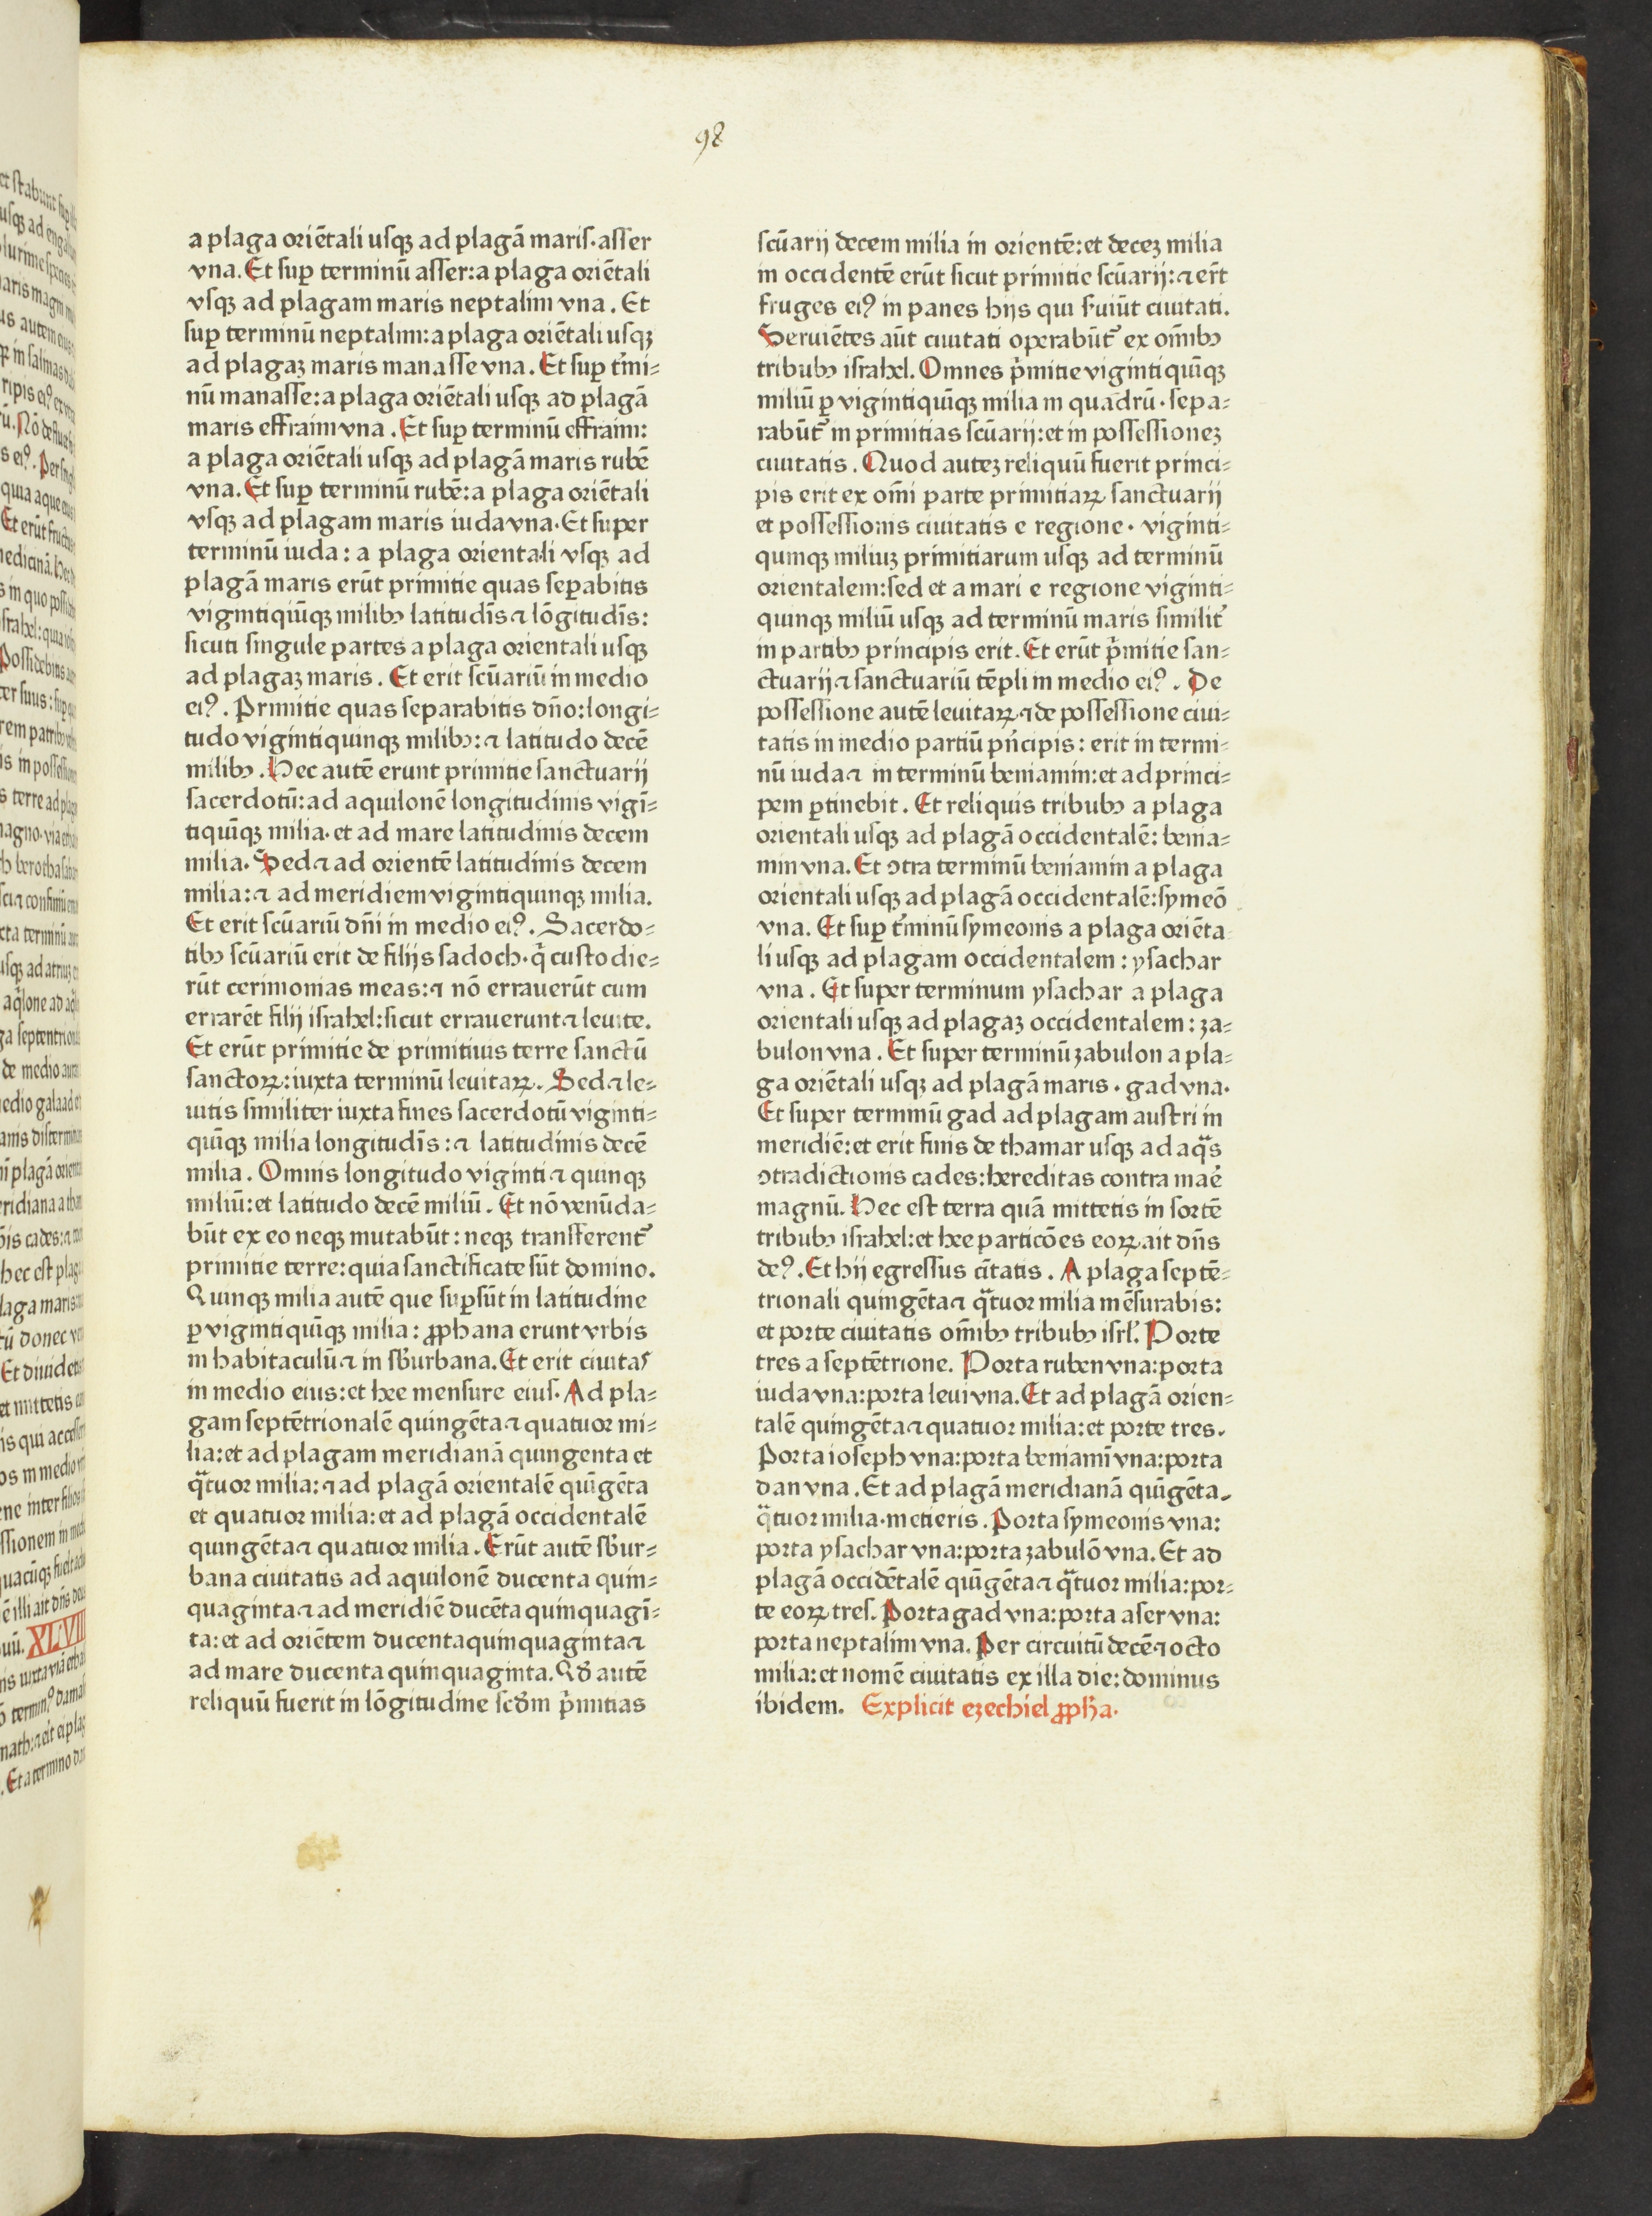 98
a plaga oriētali usqꝫ ad plagā maris·asser
vna. Et suꝑ terminū asser:a plaga oriētali
vsqꝫ ad plagam maris neptalim vna. Et
suꝑ terminū neptalim:a plaga oriētali usqꝫ
ad plagaꝫ maris manasse vna. Et suꝑ t̄mi⸗
nū manasse:a plaga oriētali usqꝫ ad plagā
maris effraim vna. Et suꝑ terminū effraim:
a plaga oriētali usqꝫ ad plagā maris rubē
vna. Et suꝑ terminū rubē:a plaga oriētali
vsqꝫ ad plagam maris iuda vna·Et super
terminū iuda: a plaga orientali vsqꝫ ad
plagā maris erūt primitie quas seꝑabitis
vigintiqiūqꝫ milibꝰ latitudīs ⁊ lōgitudīs:
sicuti singule partes a plaga orientali usqꝫ
ad plagaꝫ maris. Et erit scūariū in medio
eiꝰ. Primitie quas separabitis dn̄o:longi⸗
tudo vigintiquinqꝫ milibꝰ:⁊ latitudo decē
milibꝰ. Hec autē erunt primitie sanctuarij
sacerdotū:ad aquilonē longitudinis vigī⸗
tiquīqꝫ milia·et ad mare latitudinis decem
milia. Sed ⁊ ad orientē latitudinis decem
milia:⁊ ad meridiem vigintiquinqꝫ milia.
Et erit scūariū dn̄i in medio eiꝰ. Sacerdo⸗
tibꝰ scūariū erit de filijs sadoch·q̄ custodie⸗
rūt cerimonias meas:⁊ nō errauerūt cum
errarēt filij israhel:sicut errauerunt ⁊ leuite.
Et erūt primitie de primitiuis terre sanctū
sanctoꝝ:iuxta terminū leuitaꝝ. Sed ⁊ le⸗
uitis similiter iuxta fines sacerdotū viginti⸗
quīqꝫ milia longitudīs:⁊ latitudinis decē
milia. Omnis longitudo viginti ⁊ quinqꝫ
miliū:et latitudo decē miliū. Et nō venūda⸗
būt ex eo neqꝫ mutabūt: neqꝫ transferent᷑
primitie terre:quia sanctificate sūt domino.
Quinqꝫ milia autē que suꝑsūt in latitudine
ꝑ vigintiquīqꝫ milia: ꝓphana erunt vrbis
in habitaculū ⁊ in sb̄urbana. Et erit ciuitas
in medio eius:et hee mensure eius. Ad pla⸗
gam septētrionalē quingēta ⁊ quatuor mi⸗
lia:et ad plagam meridianā quingenta et
q̄tuor milia:⁊ ad plagā orientalē quīgēta
et quatuor milia:et ad plagā occidentalē
quingēta ⁊ quatuor milia. Erūt autē sb̄ur⸗
bana ciuitatis ad aquilonē ducenta quin⸗
quaginta ⁊ ad meridiē ducēta quinquagī⸗
ta:et ad oriētem ducentaquinquaginta ⁊
ad mare ducenta quinquaginta. Qd̄ autē
reliquū fuerit in lōgitudine scd̄m p̄mitias
scūarij decem milia in orientē:et deceꝫ milia
in occidentē erūt sicut primitie scūarij:⁊ er̄t
fruges eiꝰ in panes hijs qui s̄uiūt ciuitati.
Seruiētes aūt ciuitati operabūt᷑ ex om̄ibꝰ
tribubꝰ israhel. Omnes p̄mitie viginti quīqꝫ
miliū ꝑ vigintiquīqꝫ milia in quadrū·sepa⸗
rabūt᷑ in primitias scūarij:et in possessioneꝫ
ciuitatis. Quod auteꝫ reliquū fuerit princi⸗
pis erit ex om̄i parte primitiaꝝ sanctuarij
et possessionis ciuitatis e regione· viginti⸗
quinqꝫ miliuꝫ primitiarum usqꝫ ad terminū
orientalem:sed et a mari e regione viginti⸗
quinqꝫ miliū usqꝫ ad terminū maris similit᷑
in partibꝰ principis erit. Et erūt p̄mitie san⸗
ctuarij ⁊ sanctuariū tēpli in medio eiꝰ. De
possessione autē leuitaꝝ ⁊ de possessione ciui⸗
tatis in medio partiū pn̄cipis: erit in termi⸗
nū iuda ⁊ in terminū beniamin:et ad princi⸗
pem ꝑtinebit. Et reliquis tribubꝰ a plaga
orientali usqꝫ ad plagā occidentalē: benia⸗
min vna. Et ↄtra terminū beniamin a plaga
orientali usqꝫ ad plagā occidentalē:symeō
vna. Et suꝑ t̄minū symeonis a plaga oriēta
li usqꝫ ad plagam occidentalem: ysachar
vna. Et super terminum ysachar a plaga
orientali usqꝫ ad plagaꝫ occidentalem: za⸗
bulon vna. Et super terminū zabulon a pla⸗
ga oriētali usqꝫ ad plagā maris· gad vna·
Et super terminū gad ad plagam austri in
meridiē:et erit finis de thamar usqꝫ ad aq̄s
ↄtradictionis cades:hereditas contra mar̄e
magnū. Hec est terra quā mittetis in sortē
tribubꝰ israhel:et hee particōes eoꝝ ait dn̄s
deꝰ. Et hij egressus ci̅tatis. A plaga septē⸗
trionali quingēta ⁊ q̄tuor milia mēsurabis:
et porte ciuitatis om̄ibꝰ tribubꝰ isrl̄. Porte
tres a septētrione. Porta ruben vna:porta
iuda vna:porta leui vna. Et ad plagā orien⸗
talē quingēta ⁊ quatuor milia:et porte tres.
Porta ioseph vna:porta beniamī vna:porta
dan vna. Et ad plagā meridianā quīgēta.
q̄tuor milia·metieris. Porta symeonis vna:
porta ysachar vna:porta zabulō vna. Et ad
plagā occidētalē quīgēta ⁊ q̄tuor milia:por⸗
te eoꝝ tres. Porta gad vna:porta aser vna:
porta neptalim vna. Per circuitū decē ⁊ octo
milia:et nomē ciuitatis ex illa die: dominus
ibidem. Explicit ezechiel ꝓph̄a.